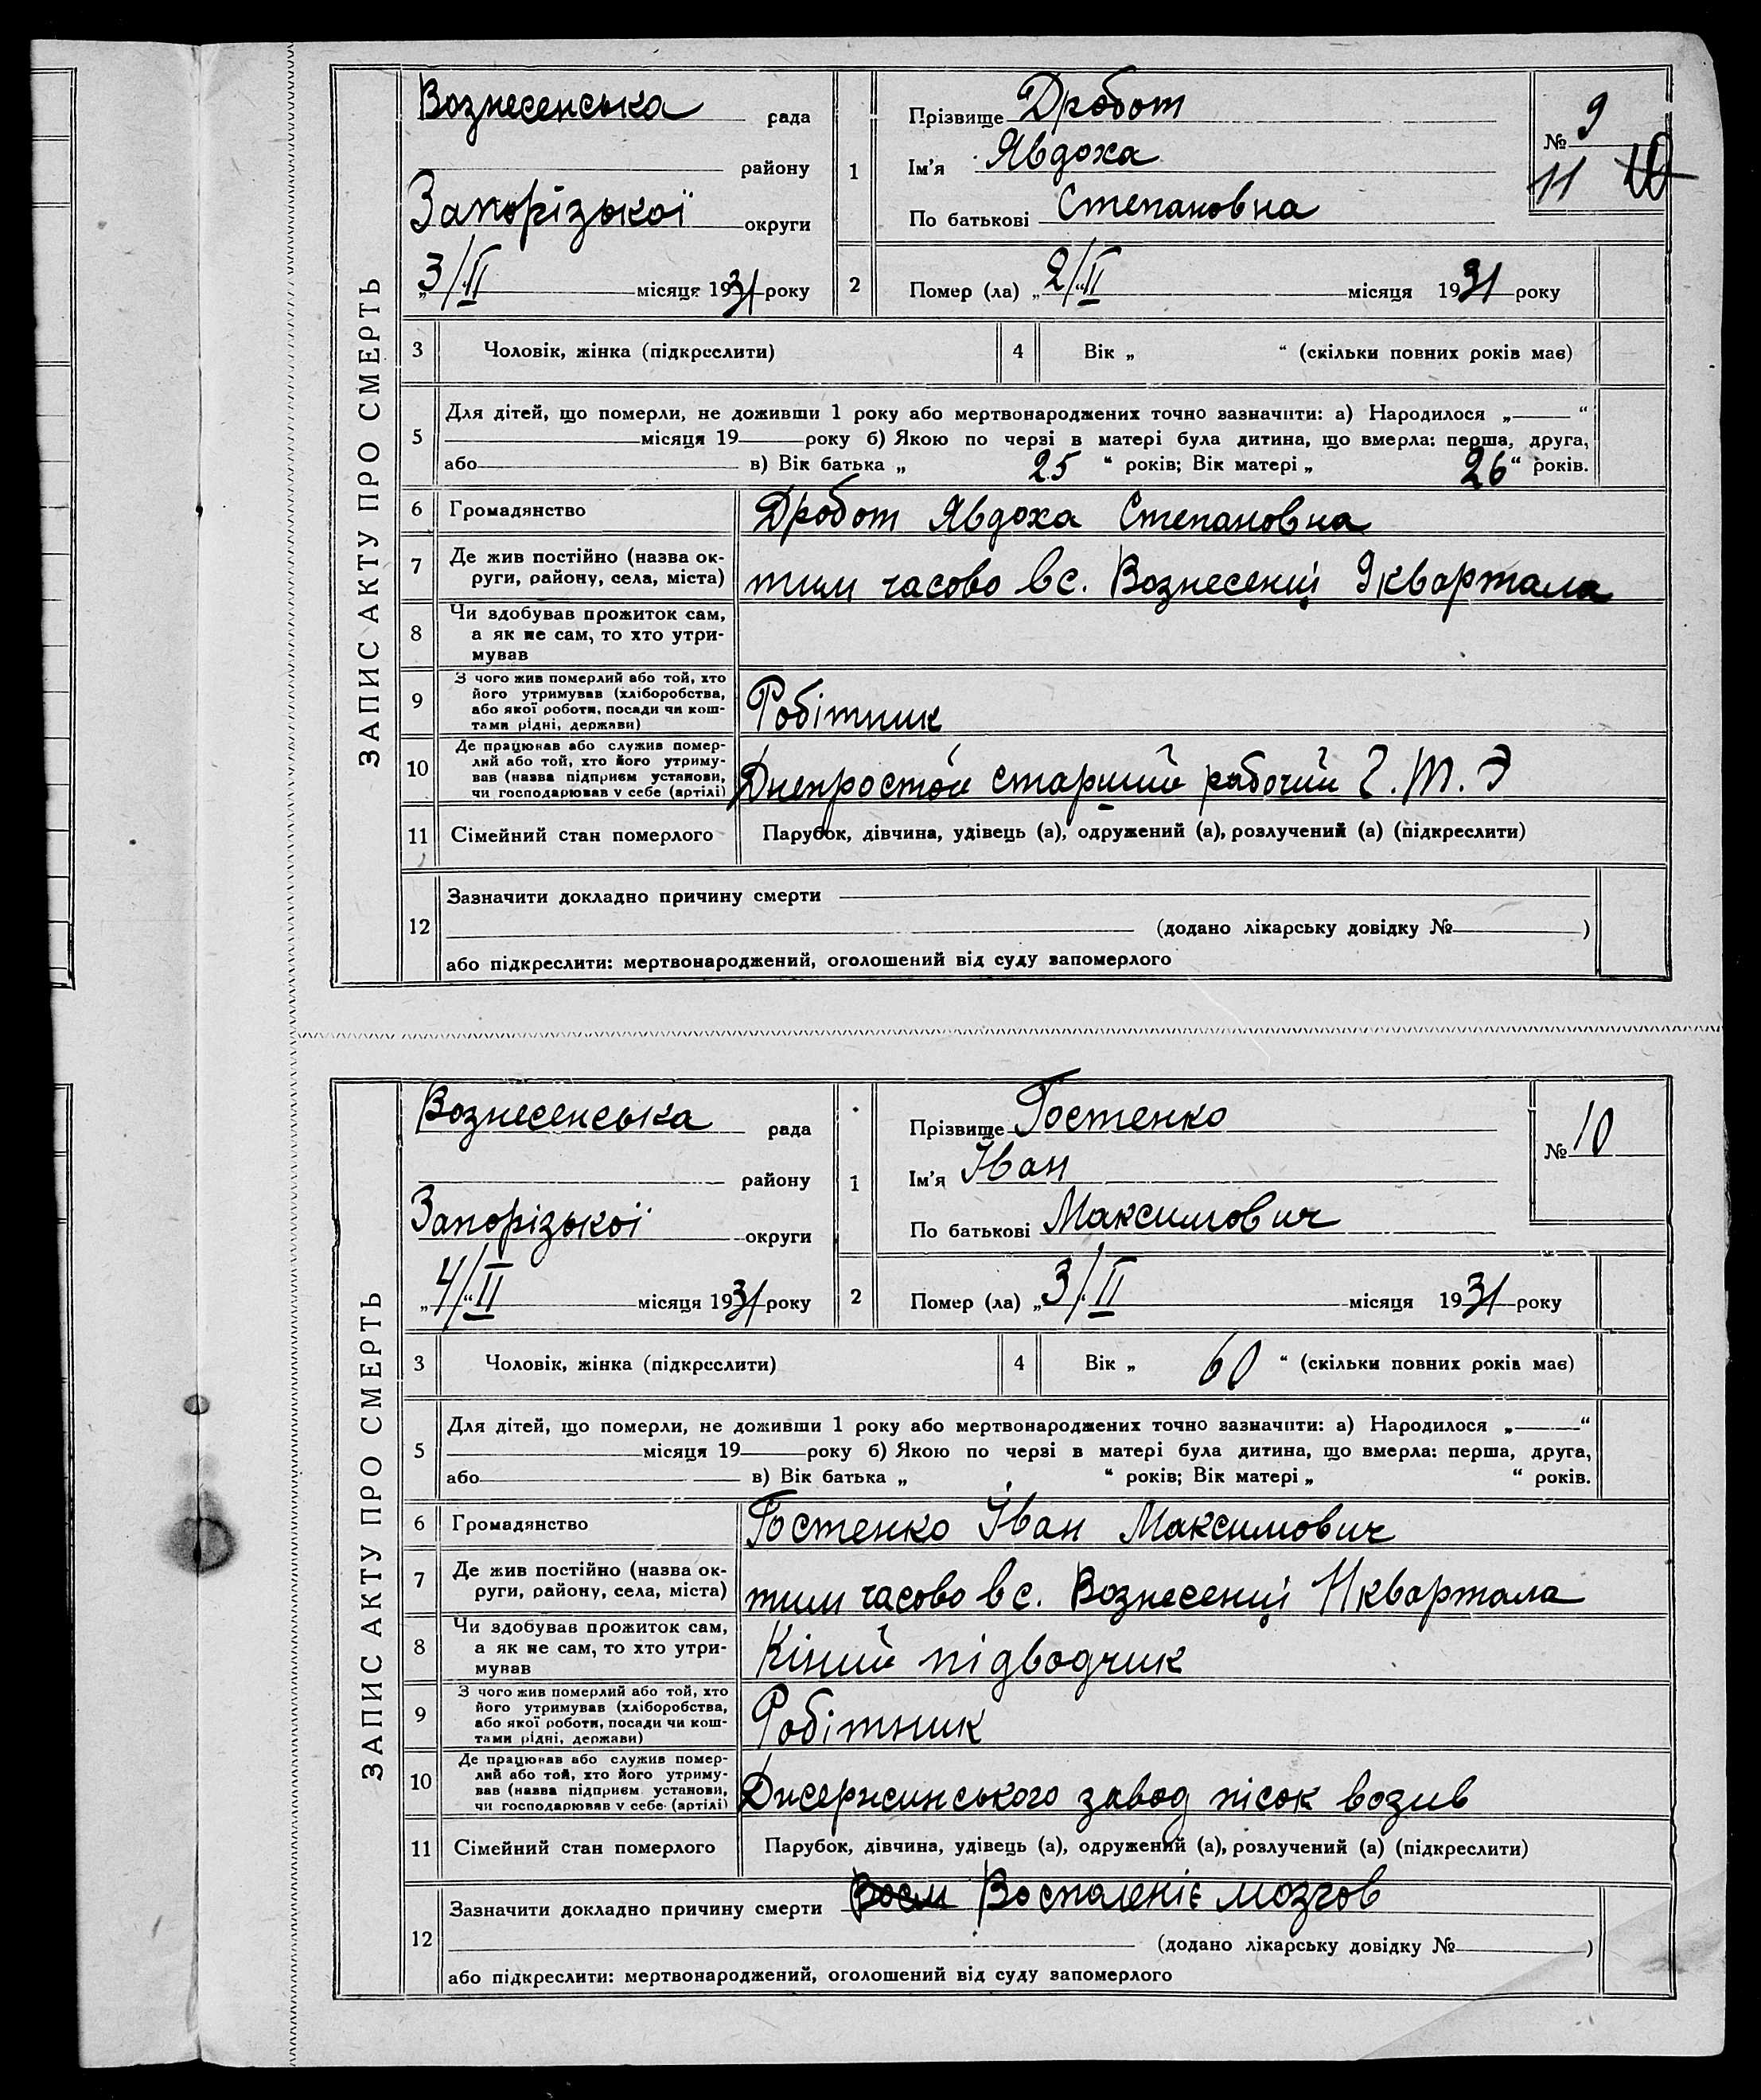 ЗАПИС АКТУ ПРО СМЕРТЬ
Вознесенська рада
району
Запорізької округи
„3/II місяця 1931 року
1
Прізвище Дробот
Ім'я Явдоха
По батькові Степановна
№ 9
11
2 Помер (ла) „2/“II місяця 1931 року
3 Чоловік, жінка (підкреслити)
4 Вік „ “ (скільки повних років має)
5 Для дітей, що померли, не доживши 1 року або мертвонароджених точно зазначити: а) Народилося „ “
місяця 19 року б) Якою по черзі в матері була дитина, що вмерла: перша, друга,
або в) Вік батька „ 25 “ років; Вік матері „ 26 “ років.
6 Громадянство Дробот Явдоха Степановна
7 Де жив постійно (назва ок-
руги, району, села, міста) тим часово в с. Вознесенці 9 квартала
8 Чи здобував прожиток сам,
а як не сам, то хто утри-
мував
9 З чого жив померлий або той, хто
його утримував (хліборобства,
або якої роботи, посади чи кош-
тами рідні, держави) Робітник
10 Де працював або служив помер-
лий або той, хто його утриму-
вав (назва підприєм установи,
чи господарював у себе (артілі) Днепростой старший рабочий Г. т. Э
11 Сімейний стан померлого Парубок, дівчина, удівець (а), одружений (а), розлучений (а) (підкреслити)
12 Зазначити докладно причину смерти
(додано лікарську довідку № )
або підкреслити: мертвонароджений, оголошений від суду запомерлого
ЗАПИС АКТУ ПРО СМЕРТЬ
Вознесенська рада
району
Запорізької округи
„4/“II місяця 1931 року
1
Прізвище Гостенко
Ім'я Іван
По батькові Максимович
№ 10
2 Помер (ла) „3/II місяця 1931 року
3 Чоловік, жінка (підкреслити)
4 Вік „ 60 “ (скільки повних років має)
5 Для дітей, що померли, не доживши 1 року або мертвонароджених точно зазначити: а) Народилося „ “
місяця 19 року б) Якою по черзі в матері була дитина, що вмерла: перша, друга,
або в) Вік батька „ “ років; Вік матері „ “ років.
6 Громадянство Гостенко Іван Максимович
7 Де жив постійно (назва ок-
руги, району, села, міста) тим часово в с. Вознесенці 11 квартала
8 Чи здобував прожиток сам,
а як не сам, то хто утри-
мував Кіний підводчик
9 З чого жив померлий або той, хто
його утримував (хліборобства,
або якої роботи, посади чи кош-
тами рідні, держави) Робітник
10 Де працював або служив помер-
лий або той, хто його утриму-
вав (назва підприєм установи,
чи господарював у себе (артілі) Джержинського завод пісок возив
11 Сімейний стан померлого Парубок, дівчина, удівець (а), одружений (а), розлучений (а) (підкреслити)
12 Зазначити докладно причину смерти Воспаленіє мозгов
(додано лікарську довідку № )
або підкреслити: мертвонароджений, оголошений від суду запомерлого